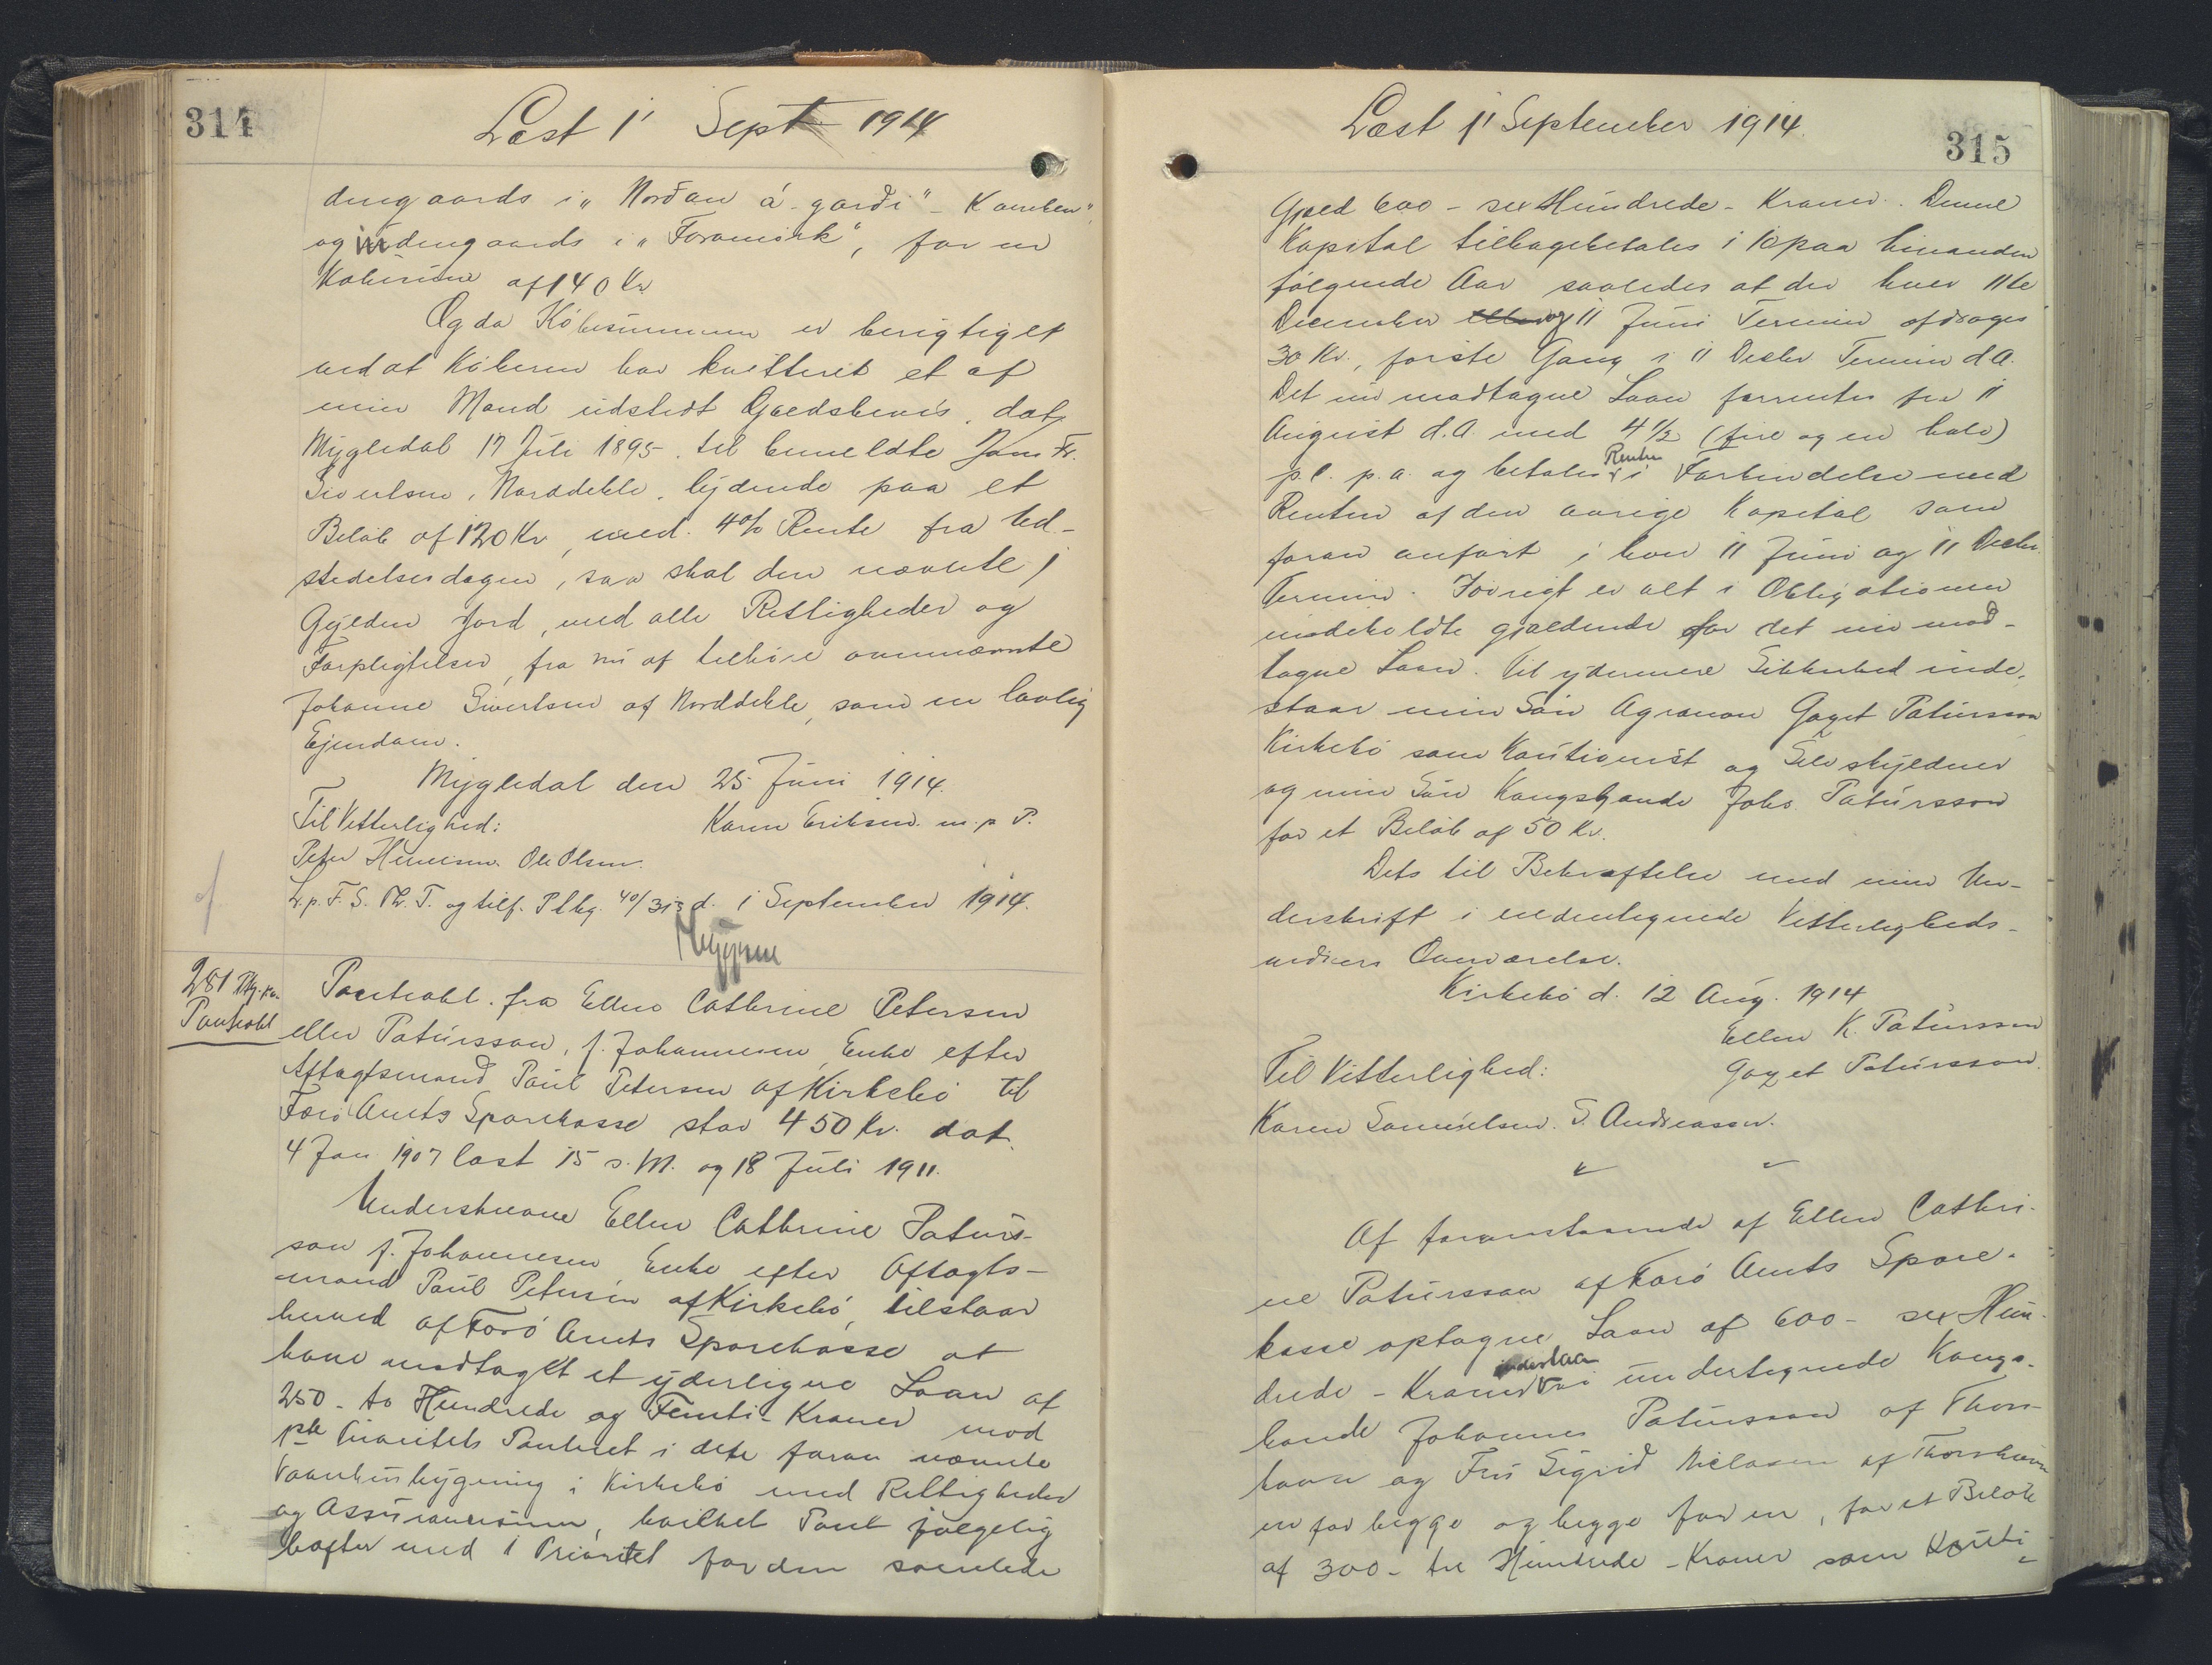 314
Læst 1' Sept 1914
dengaards i "Nordan á-gardi" - Kamben"
og indengaards i "Foramirk", for en
Købesum af 140 Kr
Og da Købesummen er berigtiget
ved at Køberen har kvitteret et af
min Mand udstedt Gjældsbevis, dat.
Mygledal 17 Juli 1895. til bemeldte Joms Fr.
Sivertsen, Norddeble, lydende paa et
Beløb af 120 Kr, med 4% Rente fra Ud-
stedelsesdagen, saa skal den nævnte
Gylden Jord, med alle Rettigheder og
Forpligtelser, fra nu af tilhøre ovennævnte
Johanne Sivertsen af Norddeble, som en lovlig
Ejendom.
Mygledal den 25 Juni 1914.
Til Vitterlighed: Karen Eriksen m. p. P.
Peter Ole Olsen.
L. p. F. S. Th. T. og tilf. Ptbg. 40/313 d. 1 September 1914.
281 Ptg. Kr.
Pantobl
Pantobl. fra Ellen Cathrine Petersen
eller Patursson, f. Johannesen, Enke efter
Aftagtsmand Paul Petersen af Kirkebø til
Færø Amts Sparekasse stor 450 Kr. dat.
4 Jan 1907 læst 15 s. M. og 18 Juli 1911.
Underskrevne Ellen Cathrine Paturs-
son f. Johannesen Enke efter Aftagts-
mand Paul Petersen af Kirkebø, tilstaar
herved af Færø Amts Sparekasse at
have modtaget et yderligere Laan af
250 - to Hundrede og Femti - Kroner mod
Prioritets Panteret i dette foran nævnte
Vaanhusbygning i Kirkebø med Rettigheder
og Assurancesum, hvilket Pant følgelig
hæfter med 1 Prioritet for den samlede
315
Læst 1' September 1914.
Gjæld 600 - sex Hundrede - Kroner. Denne
Kapital tilbagebetales i 10 paa hinanden
følgende Aar saaledes at der hver 11te
December og 11 Juni Termin afdrages
30 Kr., første Gang i 11 Decbr Termin d. A.
Det nu modtagne Laan forrentes fra 11
August d. A. med 4½ (fire og en halv)
p. C. p. a. og betales Renten i Forbindelse med
Renten af den øvrige Kapital som
foran anført i hver 11 Juni og 11 Decbr.
Termin. Iøvrigt er alt i Obligationen
indeholdte gjældende for det nu mod-
tagne Laan. Til ydermere Sikkerhed inde-
staar min Søn Agronom Gazet Patursson
Kirkebø som Kautionist og Selvskyldner
og min Søn Kongsbonde Johs. Patursson
for et Beløb af 50 Kr.
Dets til Bekræftelse med min Un-
derskrift i nedentegnede Vitterligheds-
vidners Overværelse.
Kirkebø d. 12 Aug. 1914
Ellen K. Patursson
Til Vitterlighed: Gazet Patursson.
Karen Samuelsen. S. Andreasen.
Af foranstaaende af Ellen Cathri-
ne Patursson af Færø Amts Spare-
kasse optagne Laan af 600 - sex Hun-
drede - Kroner indestaa vi undertegnede Kongs-
bonde Johannes Patursson af Thors-
havn og Frü Sigrid Niclasen af Thorshavn
en for begge og begge for en, for et Beløb
af 300 - tre Hundrede - Kroner som Kauti-